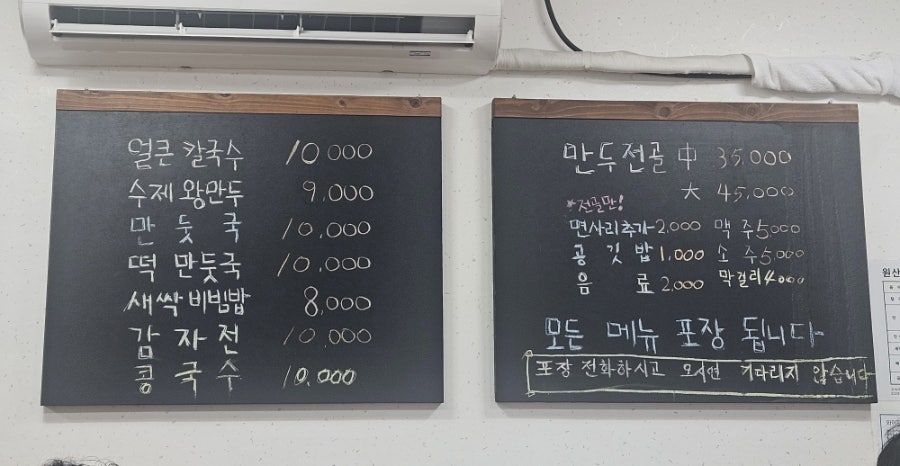 얼큰 칼국수 10,000
수제 왕만두 9,000
만둣국 10,000
떡 만둣국 10,000
새싹 비빔밥 8,000
감자전 10,000
콩국수 10,000
만두전골 中 35,000
大 45,000
*전골만!
면사리추가 2,000 맥주 5000
공깃밥 1,000 소주 5,000
음료 2,000 막걸리 4000
모든 메뉴 포장 됩니다
포장 전화하시고 오시면 기다리지 않습니다
원산